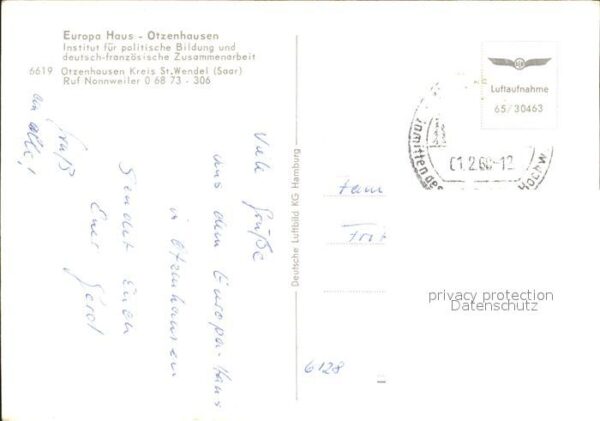 Europa Haus - Otzenhausen
Institut für politische Bildung und
deutsch-französische Zusammenarbeit
6619 Otzenhausen Kreis St.Wendel (Saar)
Ruf Nonnweiler 0 68 73 - 306
Viele Grüße
aus dem Europa-Haus
in Otzenhausen
sendet Euch
Euer Gerot
Gruß
an alle!
Deutsche Luftbild KG Hamburg
Luftaufnahme
65/30463
inmitten des
Hochw
01.2.68-12
Fam
Frit
6128
privacy protection
Datenschutz